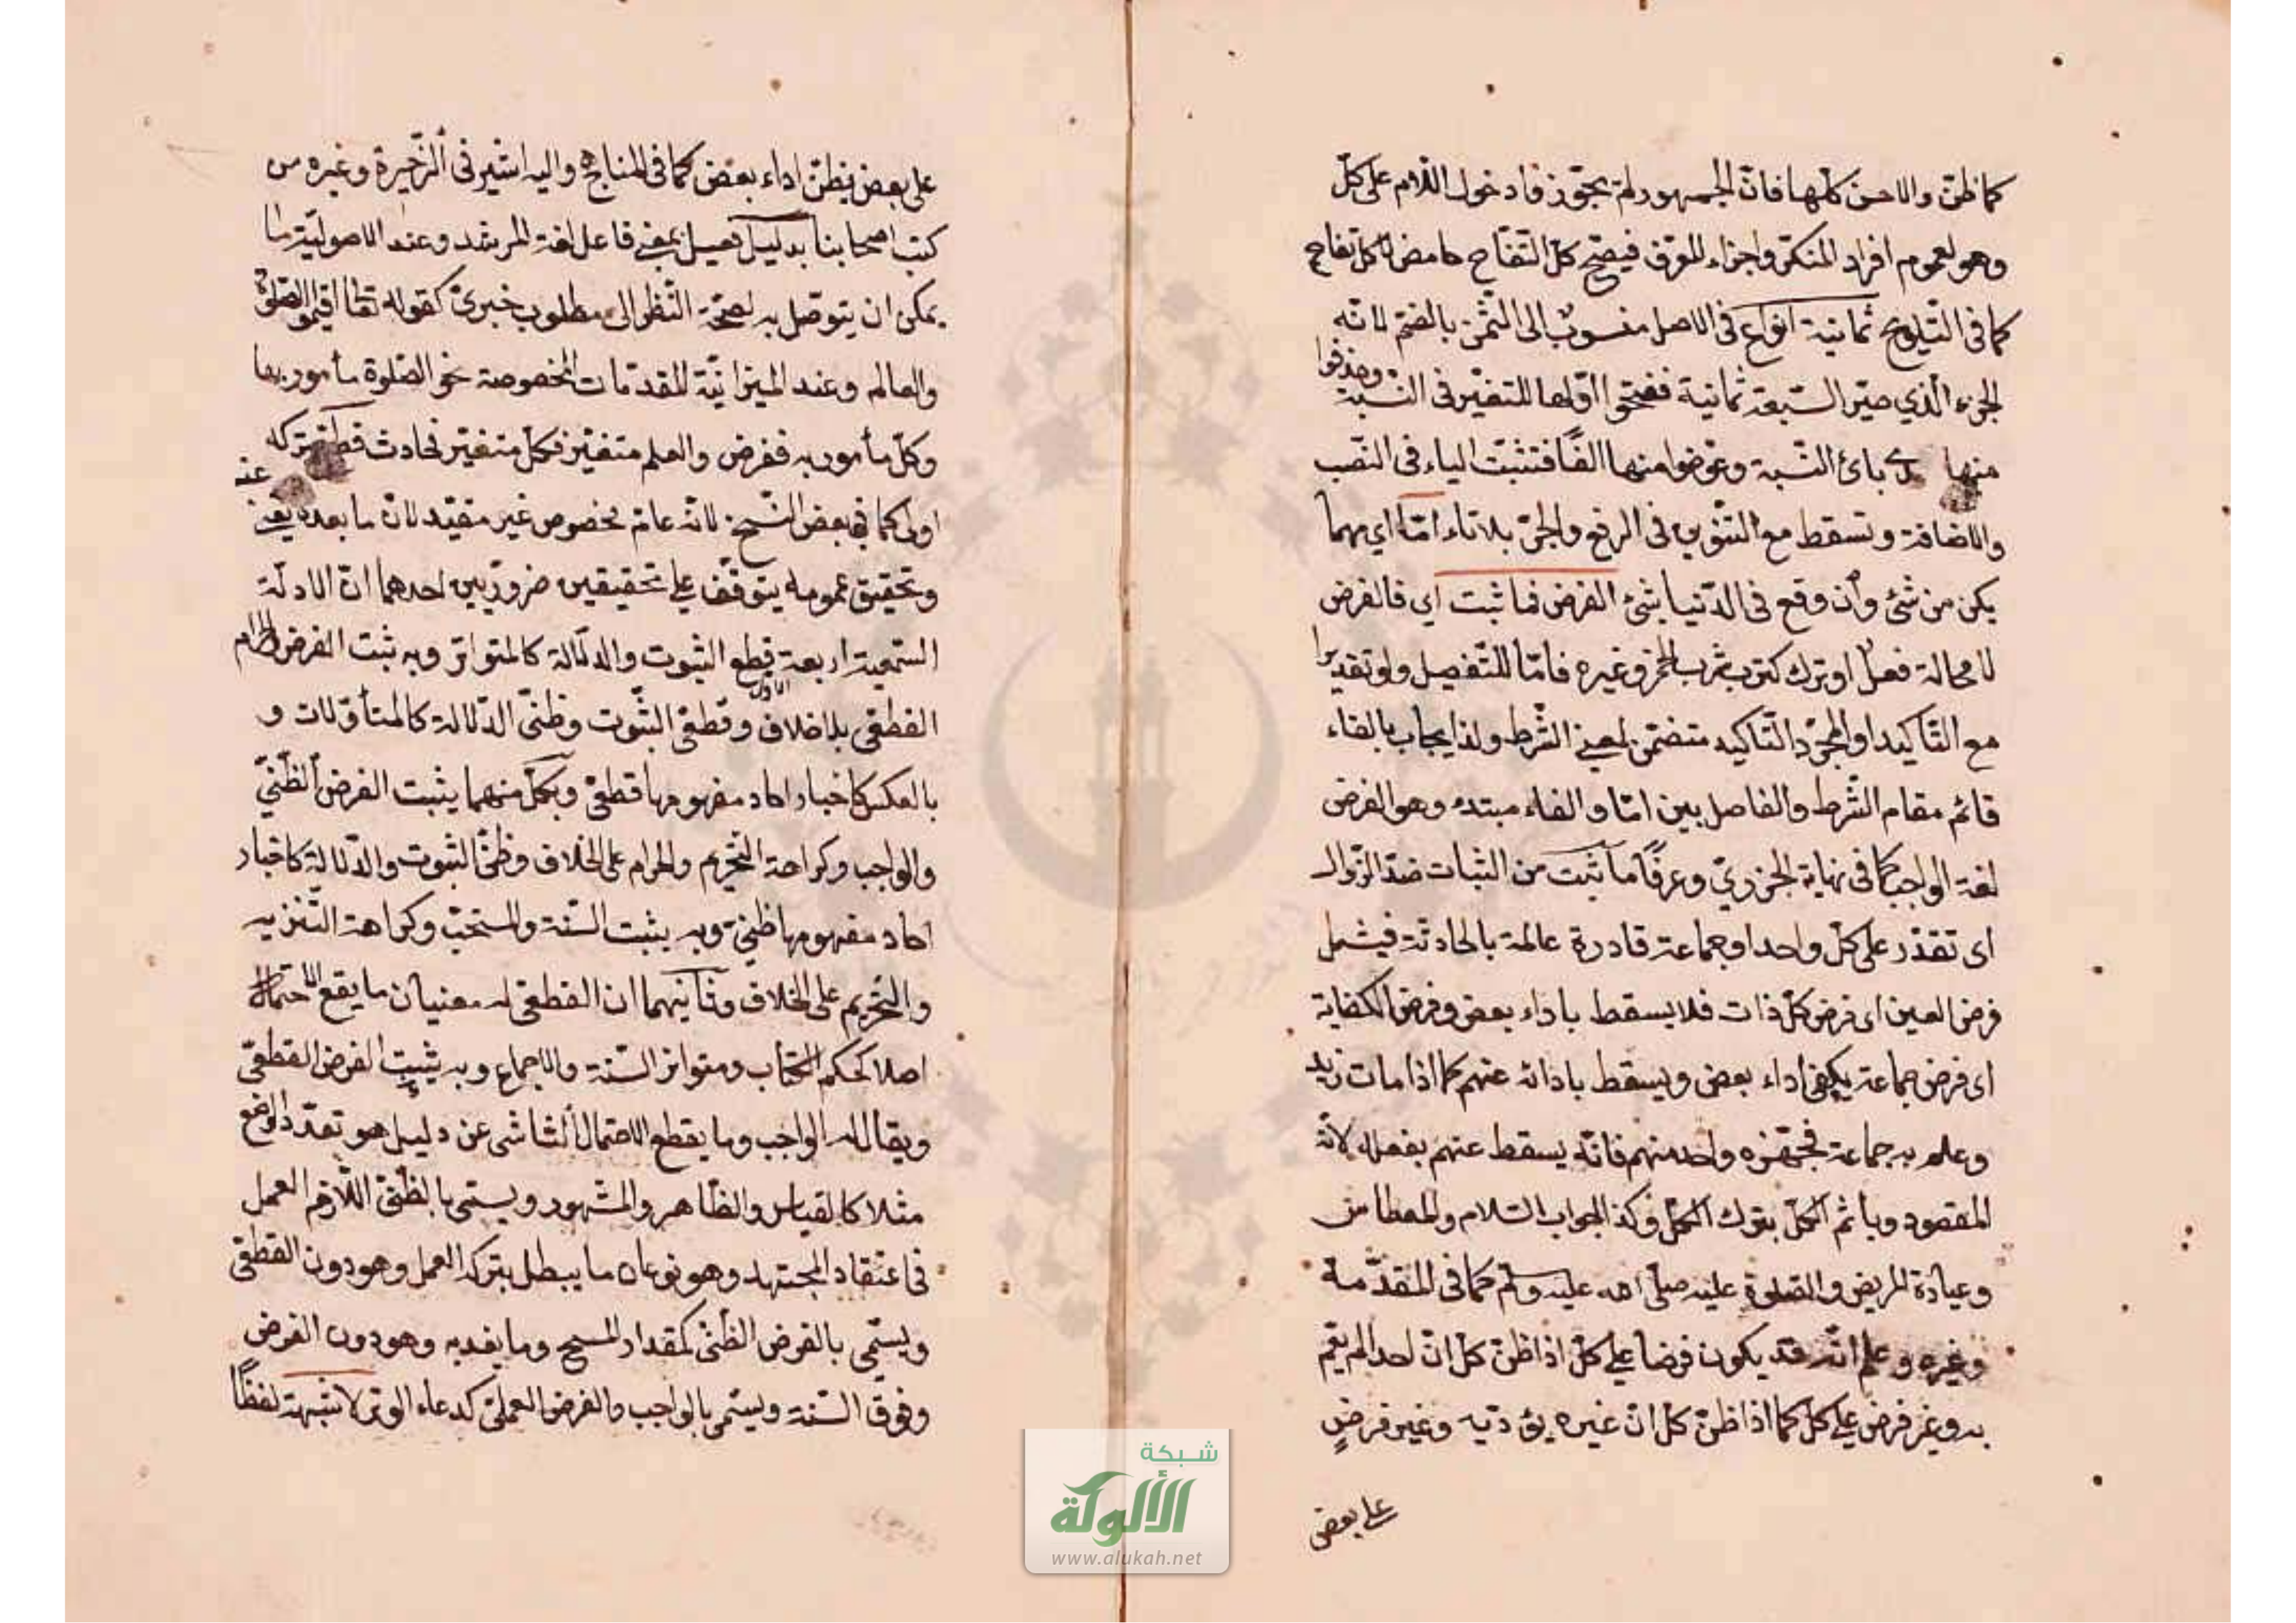 كما ظنّ والاحسن كلّها فانّ الجمهور لم يجوّزوا دخول اللام على كلّ
وهو لعموم افراد المنكر واجزاء المعرّف فيصحّ كلّ التفّاح حامض لا كلّ تفاح
كما فى التّلويح ثمانية انواع فى الاصل منسوبٌ الى الثّمن بالضمّ لانّه
الجزء الّذي صيّر السّبعة ثمانية ففتحوا اوّلها للتغيّر فى النّسبة وحذفوا
منها احدى يائي النّسبة وعوّضوا منها الفًا فتثبت الياء فى النّصب
والاضافة وتسقط مع التّنوين فى الرفع والجرّ بلا تاء امّا اي مهما
يكن من شئ وان وقع فى الدّنيا شئ الفرض فما ثبت اي فالفرض
لا محالة فعلٌ او ترك كترب شرب الخمر وغيره فامّا للتّفصيل ولو تقديرًا
مع التّأكيد او لمجرّد التّاكيد متضمّن لمعنى الشّرط ولذا يجاب بالفاء
قائم مقام الشّرط والفاصل بين امّا والفاء مبتدء وهو الفرض
لغة الواجب كما فى نهاية الجزريّ وعرفًا ما ثبت من الثبات ضدّ الزّوال
اى تقدّر على كلّ واحد او جماعة قادرة عالمة بالحادثة فيشمل
فرض العين اى فرض كلّ ذات فلا يسقط باداء بعض وفرض الكفاية
اى فرض جماعة يكفى اداء بعض ويسقط بادائه عنهم كما اذا مات زيد
وعلم به جماعة فجهّزه واحد منهم فانّه يسقط عنهم بفعله لانّه
المقصود ويأثم الكلّ بترك الكلّ وكذا الجواب السّلام والعطاس
وعيادة المريض والصلوة عليه صلّى الله عليه وسلّم كما فى المقدّمة
وغيره وعلم انّه قد يكون فرضا على كلّ اذا ظنّ كلّ انّ احدا لم يقم
به وغير فرض على كلّ كما اذا ظنّ كلّ انّ غيره يؤدّيه وغير فرضٍ
على بعض
على بعض يظنّ اداء بعض كما فى المناهج واليه اشير فى الذّخيرة وغيره من
كتب اصحابنا بدليل فعيل بمعنى فاعل لغة المرشد وعند الاصوليّة ما
يمكن ان يتوصّل به لصحّة النّظر الى مطلوب خبريّ كقوله تعالى اقيموا الصّلوة
والعالم وعند الميزانيّة المقدّمات المخصوصة نحو الصّلوة مأمور بها
وكلّ مأمور به ففرض والعلم متغيّر فكلّ متغيّر فحادث قطعى تركه
عنه
اولى كما فى بعض النّسخ لانّه عامّ مخصوص غير مقيّد لانّ ما بعده يعيّنه
وتحقيق عمومه يتوقّف على تحقيقين ضروريين احدهما انّ الادلّة
السّمعيّة اربعة قطعى الثبوت والدّلالة كالمتواتر وبه ثبت الفرض والحرام
الاوّل
القطعى بلا خلاف وقطعى الثّبوت وظنّى الدّلالة كالمتأوّلات و
بالعكس كاخبار احاد مفهومها قطعىّ وبكلّ منهما يثبت الفرض الظّنّيّ
والواجب وكراهة التّحريم والحرام على الخلاف وظنّى الثبوت والدّلالة كاخبار
احاد مفهومها ظنّىّ وبه يثبت السّنّة والمستحبّ وكراهة التّنزيه
والتّحريم على الخلاف وثانيهما ان القطعى له معنيان ما يقع الاحتمال
اصلا كحكم الكتاب ومتواتر السّنة والاجماع وبه يثبت الفرض القطعىّ
ويقال له الواجب وما يقطع الاحتمال النّاشى عن دليل هو تعدّد الوضع
مثلا كالقياس والظّاهر والمشهور ويسمّى بالظّنّىّ اللّازم العمل
فى اعتقاد المجتهد وهو نوعان ما يبطل بتركه العمل وهو دون القطعىّ
ويسمّى بالفرض الظّنّى كمقدار المسح وما يفسد به وهو دون الفرض
وفوق السّنة ويسمّى بالواجب والفرض العملىّ كدعاء الوتر لا شبهة لفظًا
شبكة
الألوكة
www.alukah.net